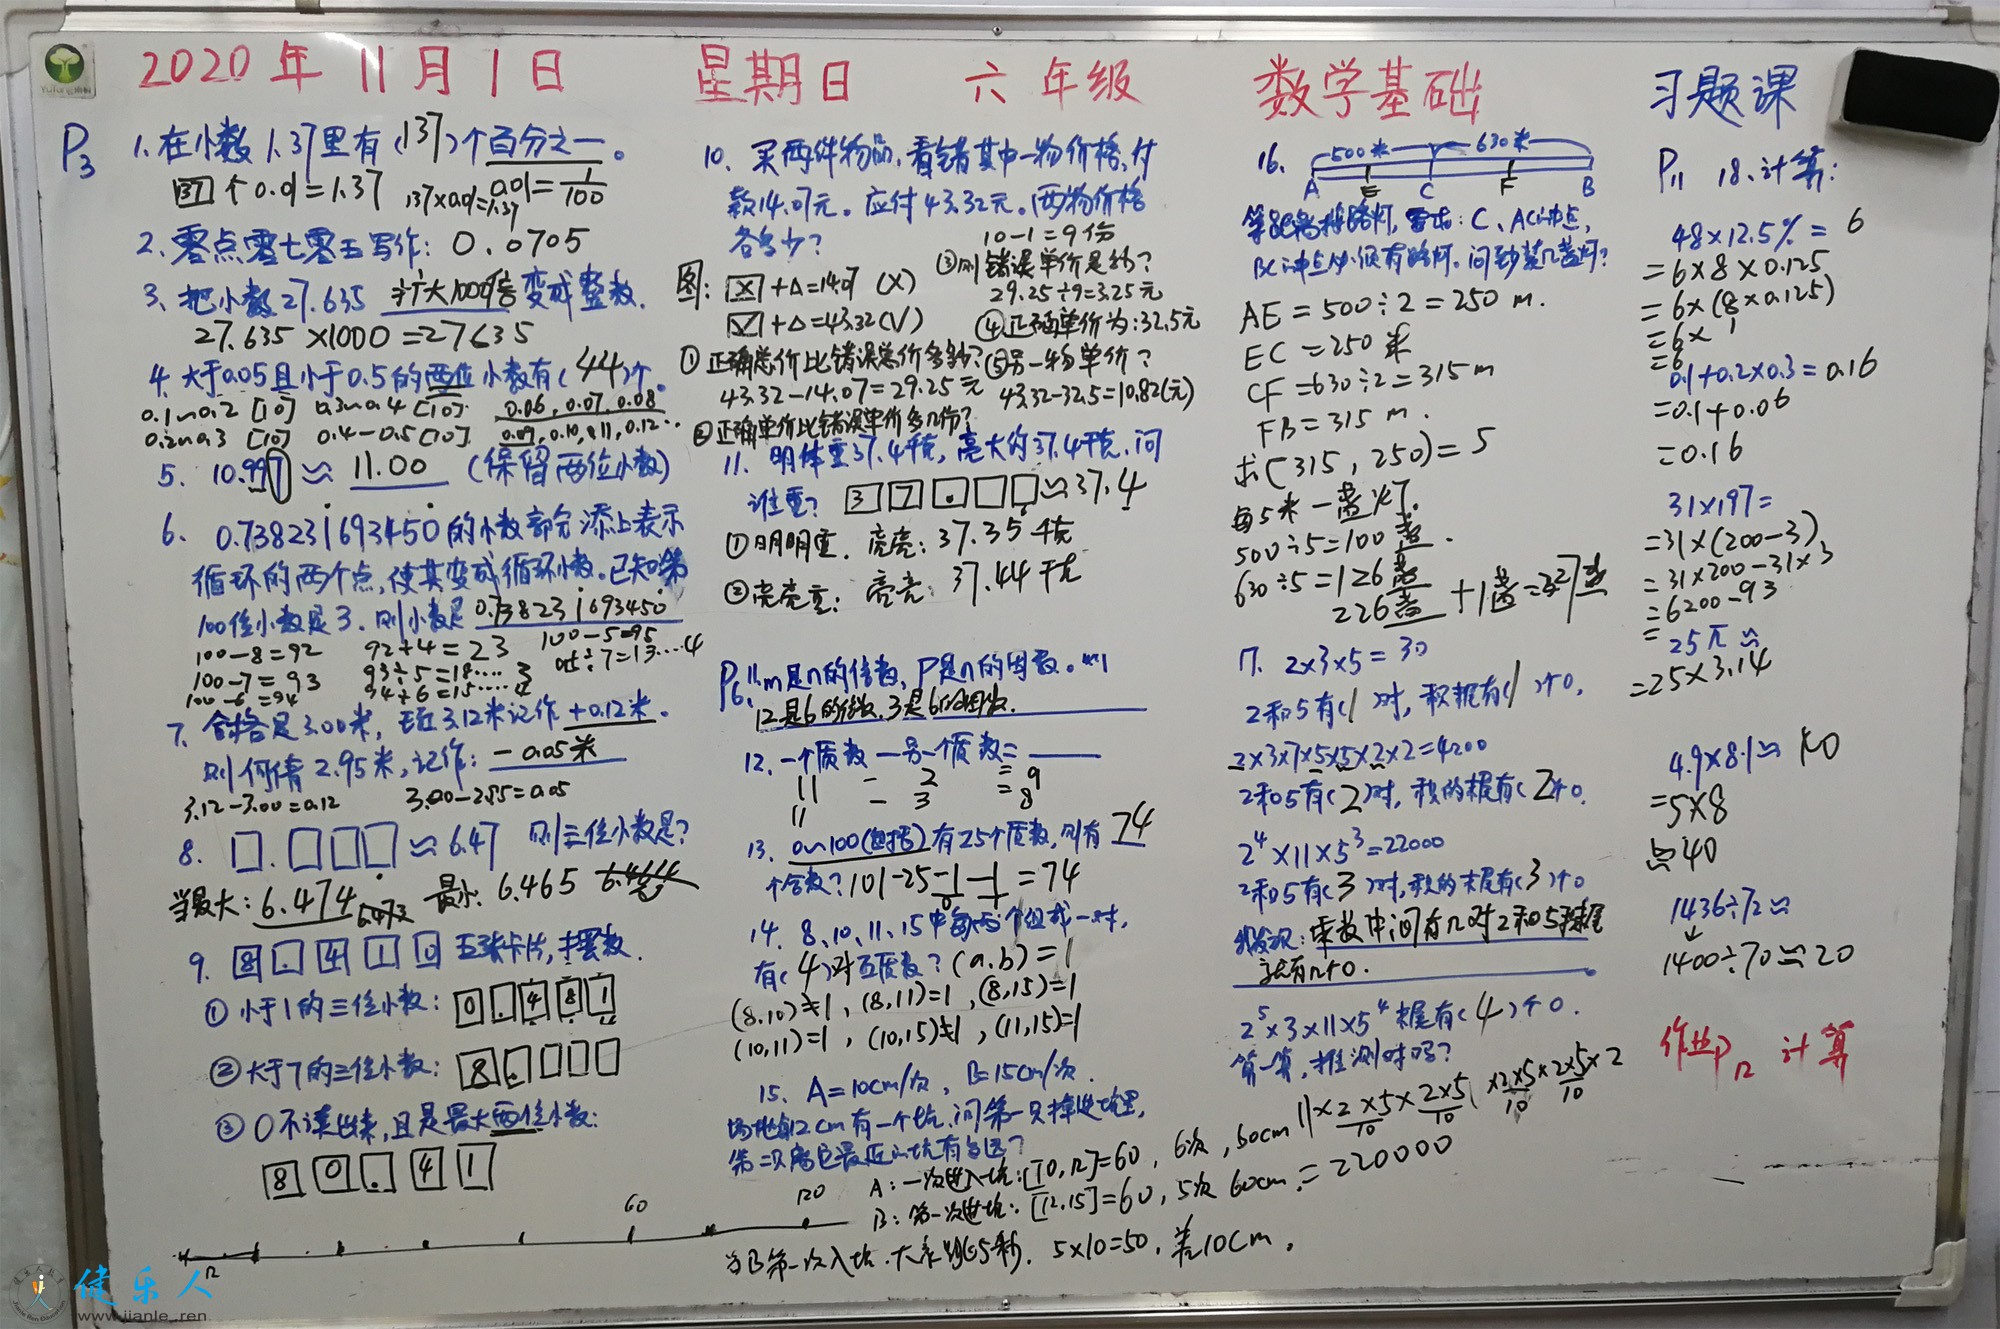 2020年11月1日 星期日 六年级 数学基础 习题课
P3 1.在小数1.37里有(137)个百分之一。
137个0.01=1.37 137×0.01=1.37 0.01=1/100
2.零点零七零五写作:0.0705
3.把小数27.635 扩大1000倍 变成整数.
27.635×1000=27635
4.大于0.05且小于0.5的两位小数有(44)个。
0.1~0.2[10] 0.3~0.4[10] 0.06,0.07,0.08
0.2~0.3[10] 0.4-0.5[10] 0.09,0.10,0.11,0.12...
5. 10.997≈11.00 (保留两位小数)
6. 0.738231693450的小数部分添上表示
循环的两个点,使其变成循环小数.已知第
100位小数是3.则小数是0.738231̇693450̇
100-8=92 92÷4=23 100-5=95
100-7=93 93÷5=18……3 95÷7=13……4
100-6=94 94÷6=15……4
7.合格是3.00米, 3.12米记作+0.12米.
则何倩2.95米,记作:-0.05米
3.12-3.00=0.12 3.00-2.95=0.05
8. □.□□□≈6.47 则三位小数是?
当最大:6.474 最小:6.465
9. 8 . 4 1 0 五张卡片,摆数.
①小于1的三位小数: 0 . 4 8 1
②大于7的三位小数: 8 . □ □ □
③0不读出来,且是最大两位小数:
8 0 . 4 1
12 60 120
10. 买两件物品,看错其中一物价格,付
款14.07元。应付43.32元。两物价格
各多少?
10-1=9份
图: X+△=14.07 (X)
V+△=43.32(V)
③则错误单价是多少?
29.25÷9=3.25元
④正确单价为:32.5元
①正确总价比错误总价多多少? ⑤另一物单价?
43.32-14.07=29.25元 43.32-32.5=10.82(元)
②正确单价比错误单价多几份?
11. 明体重37.4千克,亮大约37.4千克.问
谁重? 3 7 . □ □≈37.4
①明明重. 亮亮:37.35千克
②亮亮重: 亮亮:37.44千克
P6 11.m是n的倍数,P是n的因数。
12是6的倍数.3是6的因数.
12.一个质数-另一个质数=
11 - 2 = 9
11 - 3 = 8
13. 0~100(包括)有25个质数,则有74
个合数?101-25-1-1=74
14. 8、10、11、15中每两个组成一对,
有(4)对互质数?(a,b)=1
(8,10)≠1,(8,11)=1,(8,15)=1
(10,11)=1,(10,15)≠1,(11,15)=1
15. A=10cm/次, B=15cm/次.
场地每12cm有一个坑.问第一只掉进坑里,
第二只离它最近的坑有多远?
A:一次进入坑:[10,12]=60, 6次,
B:第一次进坑:[12,15]=60,5次 60cm.
当B第一次入坑.大家跳5秒. 5×10=50,差10cm.
16. 500米 630米
A E C F B
等距离 路灯,要求:C、AC中点,
BC中点处必须有路灯.问至少装几盏灯?
AE=500÷2=250m.
EC=250米
CF=630÷2=315m
FB=315m.
求(315,250)=5
每5米一盏灯.
500÷5=100盏.
630÷5=126盏
226盏+1盏=227盏
17. 2×3×5=30
2和5有(1)对,积末尾有(1)个0.
2×3×7×5×5×2×2=4200
2和5有(2)对,积的末尾有(2)个0.
2⁴×11×5³=22000
2和5有(3)对,积的末尾有(3)个0
我发现:乘数中间有几对2和5,末尾
就有几个0.
2⁵×3×11×5⁴末尾有(4)个0.
算一算,推测对吗?
11×2×5×2×5×2×5×2×5×2
10 10 10 10
=220000
P11 18.计算:
48×12.5%=6
=6×8×0.125
=6×(8×0.125)
=6×1
=6
0.1+0.2×0.3=0.16
=0.1+0.06
=0.16
31×197=
=31×(200-3)
=31×200-31×3
=6200-93
=
25π≈
=25×3.14
4.9×8.1≈40
=5×8
≈40
1436÷72≈
1400÷70≈20
作业P12 计算
健乐人
www.jianle.ren